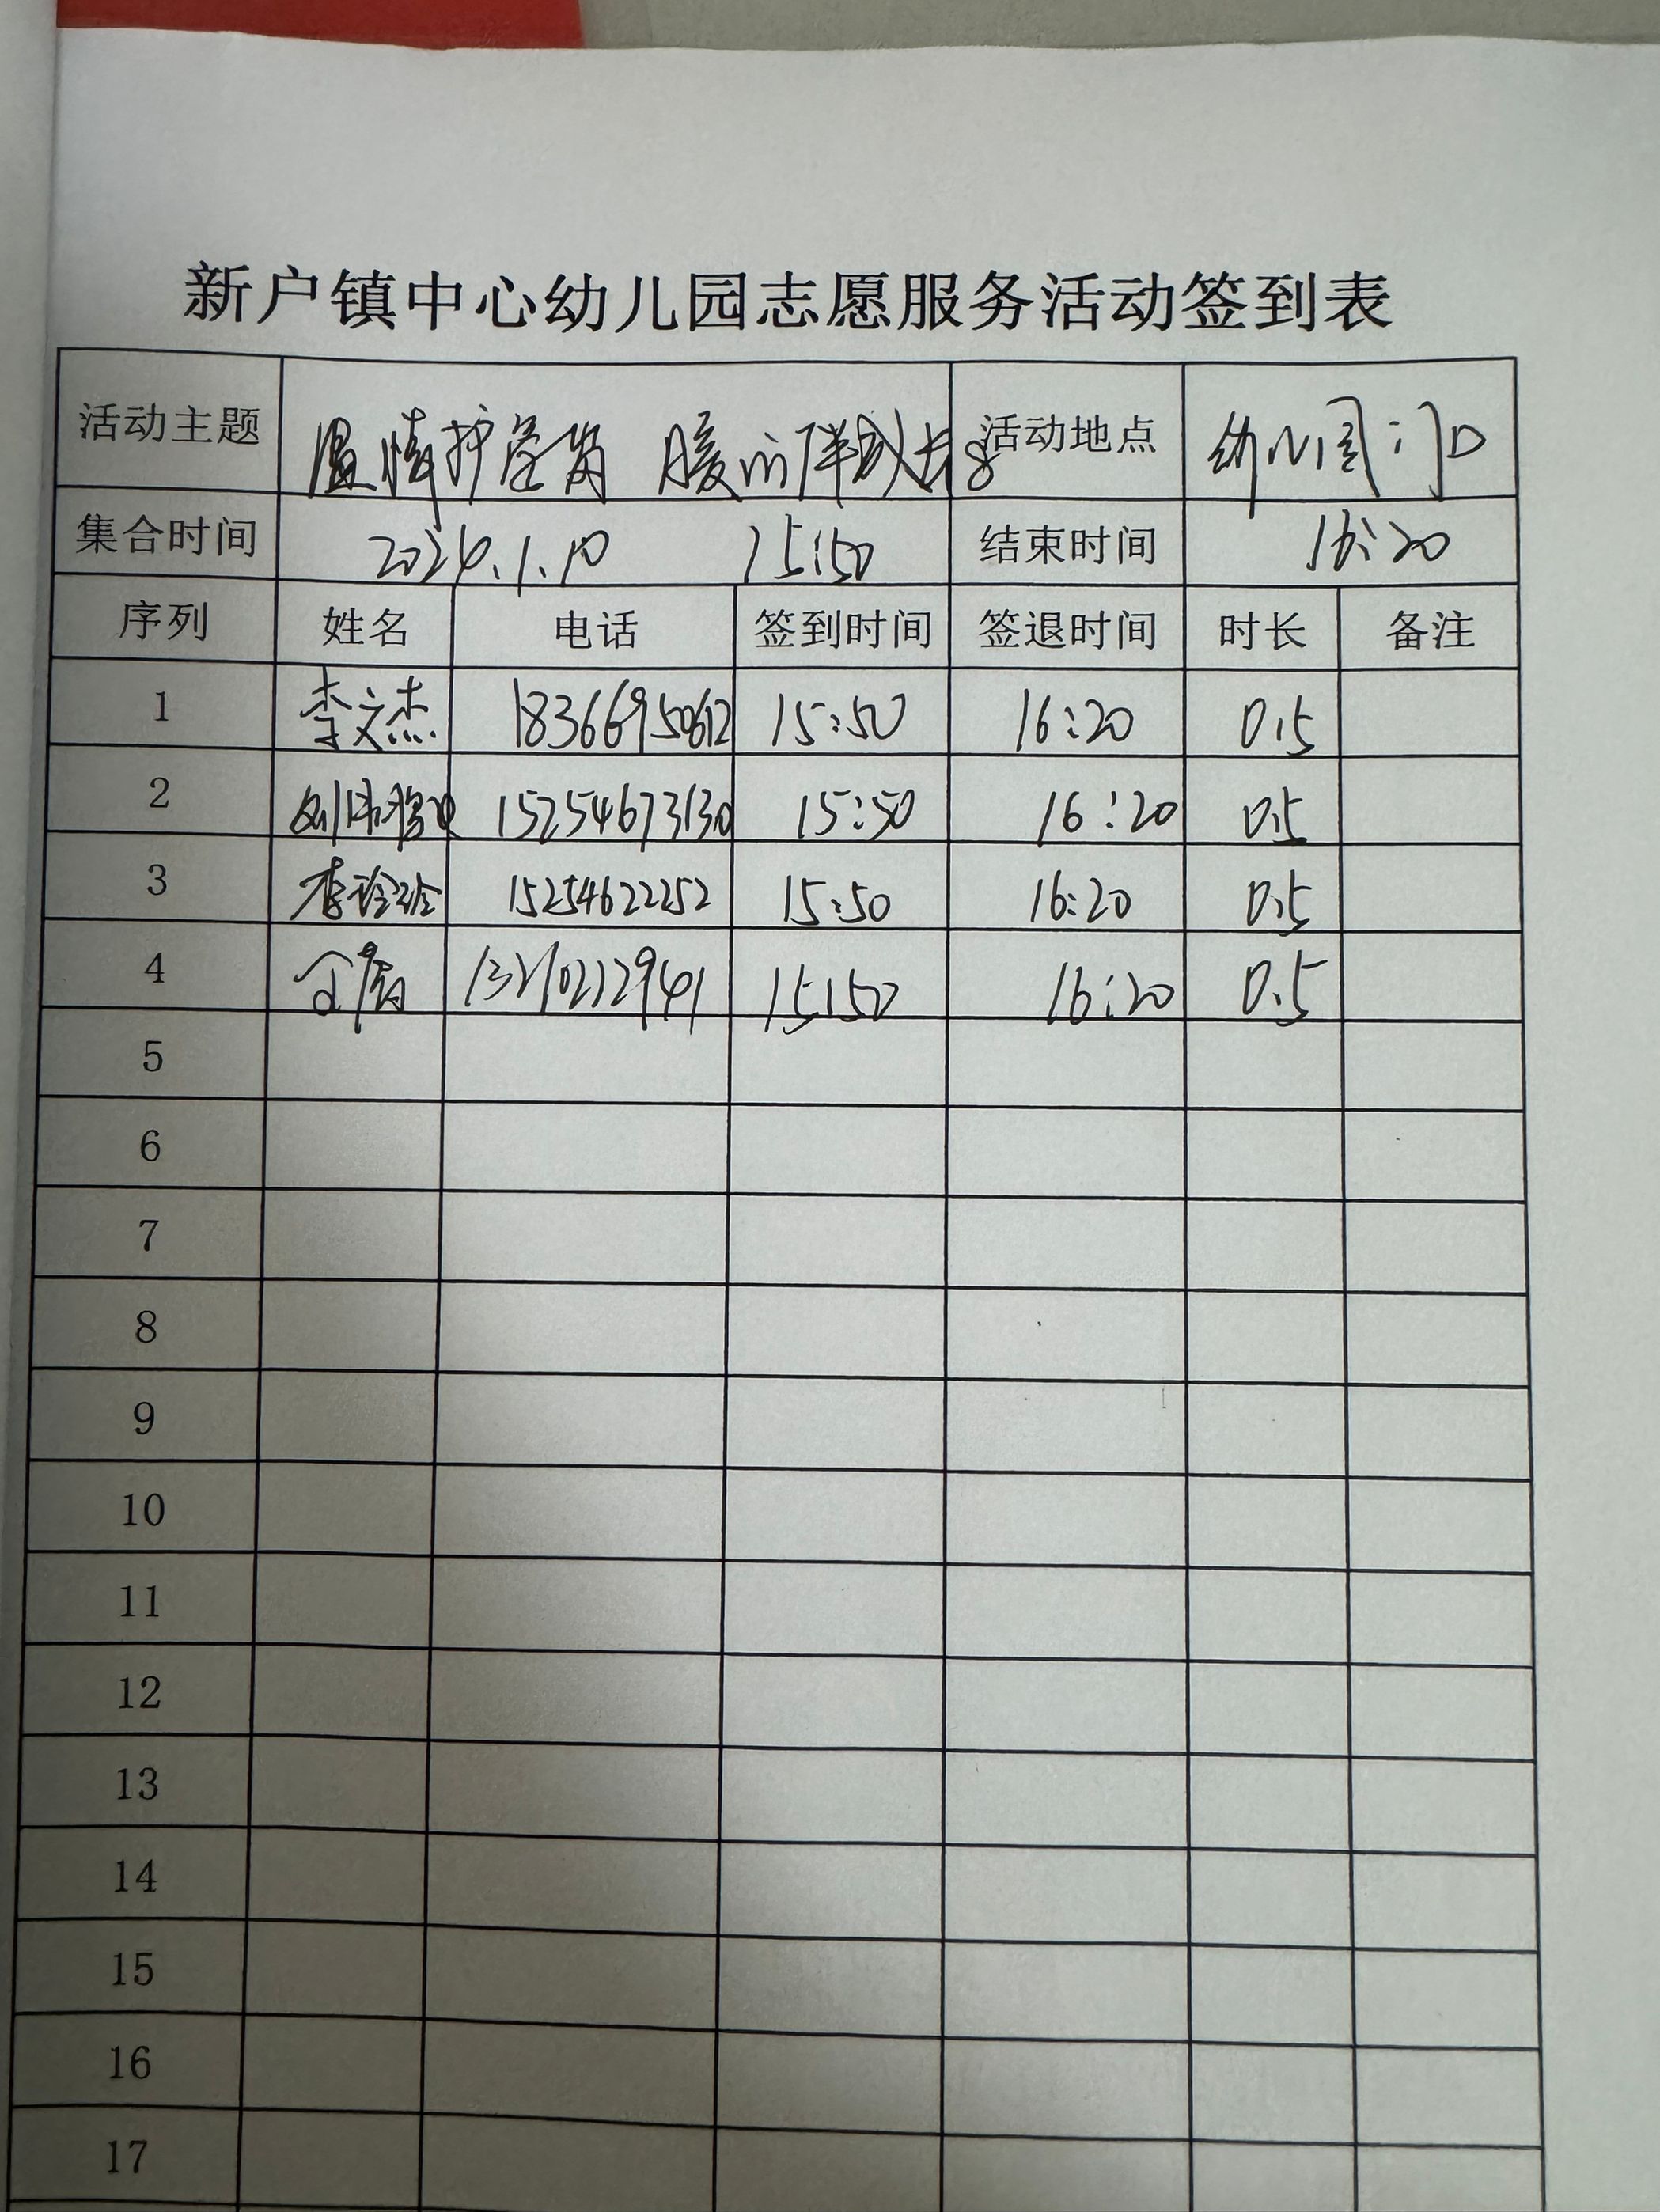 新户镇中心幼儿园志愿服务活动签到表
活动主题 温情护 暖心伴成长 活动地点 幼儿园门口
集合时间 2024.1.10 15:50 结束时间 16:20
序列 姓名 电话 签到时间 签退时间 时长 备注
1 李文杰 18366950612 15:50 16:20 0.5
2 15254673130 15:50 16:20 0.5
3 李玲玲 15254622252 15:50 16:20 0.5
4 15:50 16:20 0.5
5
6
7
8
9
10
11
12
13
14
15
16
17